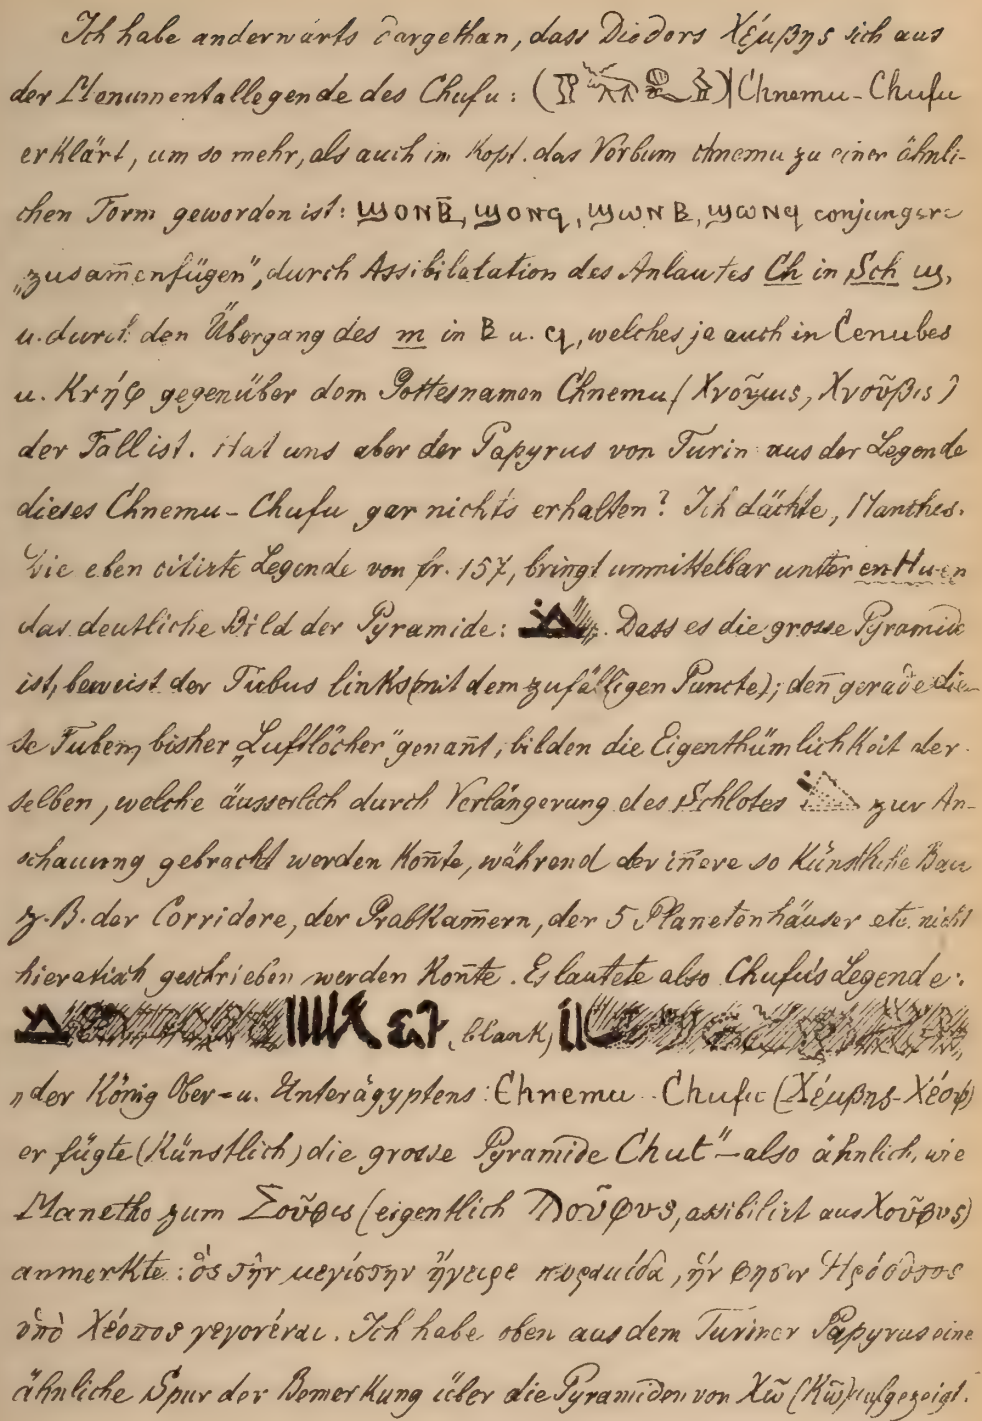 Ich habe anderwärts dargethan, dass Diodors Χέμβης sich aus
der Monumentallegende des Chufu: ( )| Chnemu-Chufu
erklärt, um so mehr, als auch im Kopt. das Verbum chnemu zu einer ähnli-
chen Form geworden ist: ϣⲟⲛⲃ̄, ϣⲟⲛϥ, ϣⲱⲛⲃ, ϣⲱⲛϥ conjungere
„zusam̄enfügen“, durch Assibilatation des Anlautes Ch in Sch ϣ,
u. durch den Übergang des m in ⲃ u. ϥ, welches ja auch in Cenubes
u. Κνήφ gegenüber dem Gottesnamen Chnemu (Χνοῦμις, Χνοῦβις)
der Fall ist. Hat uns aber der Papyrus von Turin aus der Legende
dieses Chnemu-Chufu gar nichts erhalten? Ich dächte, Manches.
Die eben citirte Legende von fr. 157, bringt unmittelbar unter
das deutliche Bild der Pyramide: . Dass es die grosse Pyramide
ist, beweist der Tubus links (mit dem zufälligen Puncte); den̄ gerade die-
se Tuben, bisher „Luftlöcher“ genan̄t, bilden die Eigenthümlichkeit der-
selben, welche äusserlich durch Verlängerung des Schlotes zur An-
schauung gebracht werden kon̄te, während der in̄ere so künstliche Bau
z.B. der Corridore, der Grabkam̄ern, der 5 Planetenhäuser etc. nicht
hieratisch geschrieben werden kon̄te. Es lautete also Chufu's Legende:
(blank)
„der König Ober- u. Unterägyptens: Chnemu-Chufu (Χέμβης-Χέοψ)
er fügte (künstlich) die grosse Pyramide Chut“ – also ähnlich, wie
Manetho zum Σοῦφις (eigentlich Ϡοῦφυς, assibilirt aus Χοῦφυς)
anmerkte: ὃς τὴν μεγίστην ἤγειρε πυραμίδα, ἥν φησιν Ἡρόδοτος
ὑπὸ Χέοπος γεγονέναι. Ich habe oben aus dem Turiner Papyrus eine
ähnliche Spur der Bemerkung über die Pyramiden von Χῶ (Κῶ) aufgezeigt.